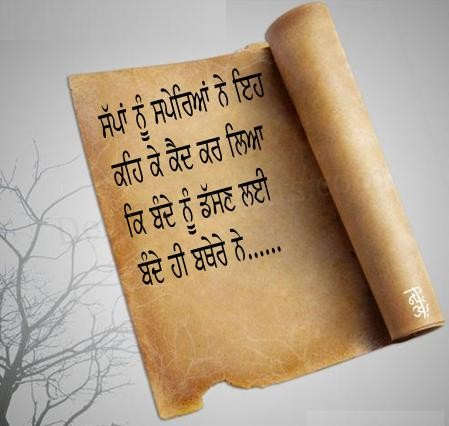 ਸੱਪਾਂ ਨੂੰ ਸਪੇਰਿਆਂ ਨੇ ਇਹ
ਕਹਿ ਕੇ ਕੈਦ ਕਰ ਲਿਆ
ਕਿ ਬੰਦੇ ਨੂੰ ਡੱਸਣ ਲਈ
ਬੰਦੇ ਹੀ ਬਥੇਰੇ ਨੇ......